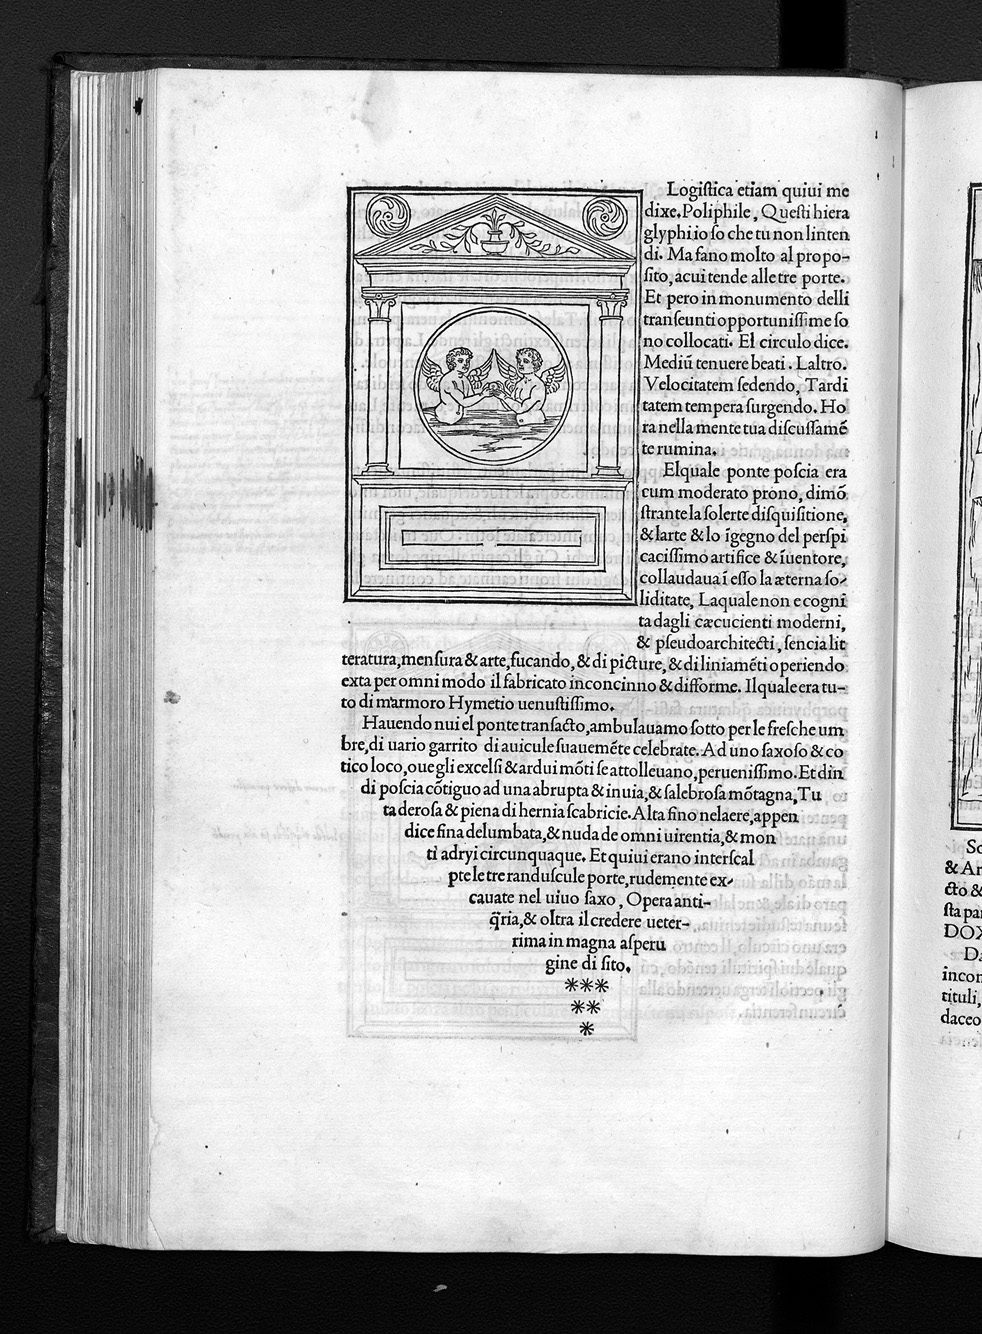 Logiſtica etiam quiui me
dixe. Poliphile, Queſti hiera
glyphi io ſo che tu non linten
di. Ma fano molto al propo-
ſito, a cui tende alle tre porte.
Et pero in monumento delli
tranſeunti opportuniſſime ſo
no collocati. El circulo dice.
Mediū tenuerē beati. Laltro.
Velocitatem ſedendo, Tardi
tatem tempera ſurgendo. Ho
ra nella mente tua diſcuſſamē
te rumina.
Elquale ponte poſcia era
cum moderato prono, dimō
ſtrante la ſolerte diſquiſitione,
& larte & lo īgegno del perſpi
caciſſimo artifice & īuentore,
collaudaua ī eſſo la æterna ſo-
liditate, Laquale non e cogni
ta dagli cæcucienti moderni,
& pſeudoarchitecti, ſencia lit
teratura, menſura & arte, fucando, & di picture, & di liniamēti operiendo
exta per omni modo il fabricato inconcinno & difforme. Il quale era tu-
to di marmoro Hymetio uenuſtiſſimo.
Hauendo nui el ponte tranſacto, ambulauamo ſotto per le freſche um
bre, di uario garrito di auicule ſuauemēte celebrate. Ad uno ſaxoſo & co
tico loco, oue gli excelſi & ardui mōti ſe attolleuano, perueniſſimo. Et din
di poſcia cōtiguo ad una abrupta & inuia, & ſalebroſa mōtagna, Tu
ta deroſa & piena di hernia ſcabricie. Alta fino nel aere, appen
dice fina delumbata, & nuda de omni uirentia, & mon
ti adryi circunquaque. Et quiui erano interſcal
pte le tre randuſcule porte, rudemente ex-
cauate nel uiuo ſaxo, Opera anti-
q̄ria, & oltra il credere ueter-
rima in magna aſperu
gine di ſito.
***
**
*
So
& Ar
cto &
ſta pa
DOX
Da
incor
tituli,
daceo